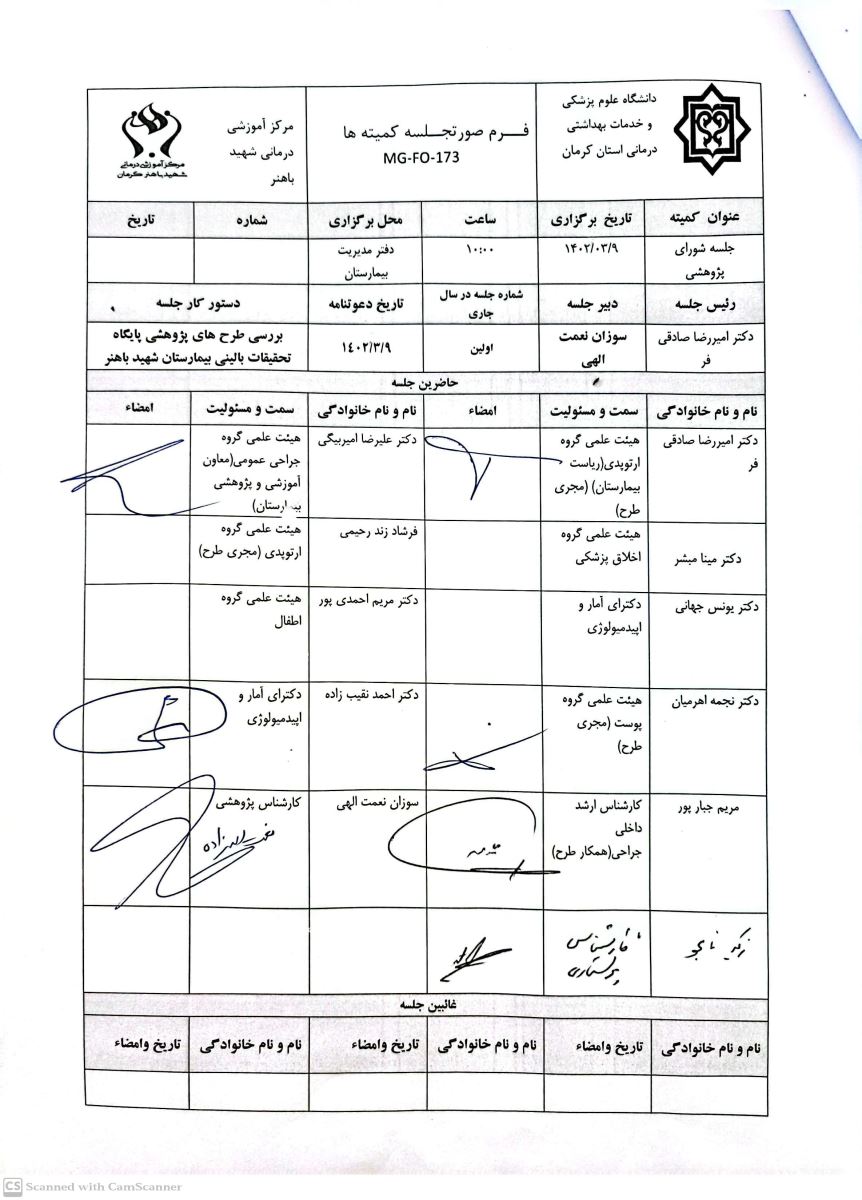 دانشگاه علوم پزشکی
و خدمات بهداشتی
درمانی استان کرمان
فـــرم صورتجـــلسه کمیته ها
MG-FO-173
مرکز آموزشی
درمانی شهید
باهنر
مرکز آموزشی درمانی
شهید باهنر کرمان
عنوان کمیته	تاریخ برگزاری	ساعت	محل برگزاری	شماره	تاریخ
جلسه شورای پژوهشی	۱۴۰۲/۰۳/۹	۱۰:۰۰	دفتر مدیریت بیمارستان
رئیس جلسه	دبیر جلسه	شماره جلسه در سال جاری	تاریخ دعوتنامه	دستور کار جلسه
دکتر امیررضا صادقی فر	سوزان نعمت الهی	اولین	۱٤۰۲/۳/۹	بررسی طرح های پژوهشی پایگاه تحقیقات بالینی بیمارستان شهید باهنر
حاضرین جلسه
نام و نام خانوادگی	سمت و مسئولیت	امضاء	نام و نام خانوادگی	سمت و مسئولیت	امضاء
دکتر امیررضا صادقی فر	هیئت علمی گروه ارتوپدی(ریاست بیمارستان) (مجری طرح)	دکتر علیرضا امیربیگی	هیئت علمی گروه جراحی عمومی(معاون آموزشی و پژوهشی بیمارستان)
دکتر مینا مبشر	هیئت علمی گروه اخلاق پزشکی	فرشاد زند رحیمی	هیئت علمی گروه ارتوپدی (مجری طرح)
دکتر یونس جهانی	دکترای آمار و اپیدمیولوژی	دکتر مریم احمدی پور	هیئت علمی گروه اطفال
دکتر نجمه اهرمیان	هیئت علمی گروه پوست (مجری طرح)	دکتر احمد نقیب زاده	دکترای آمار و اپیدمیولوژی
مریم جبار پور	کارشناس ارشد داخلی جراحی(همکار طرح)	سوزان نعمت الهی	کارشناس پژوهشی
کارشناس پرستاری
غائبین جلسه
نام و نام خانوادگی	تاریخ وامضاء	نام و نام خانوادگی	تاریخ وامضاء	نام و نام خانوادگی	تاریخ وامضاء
CS Scanned with CamScanner